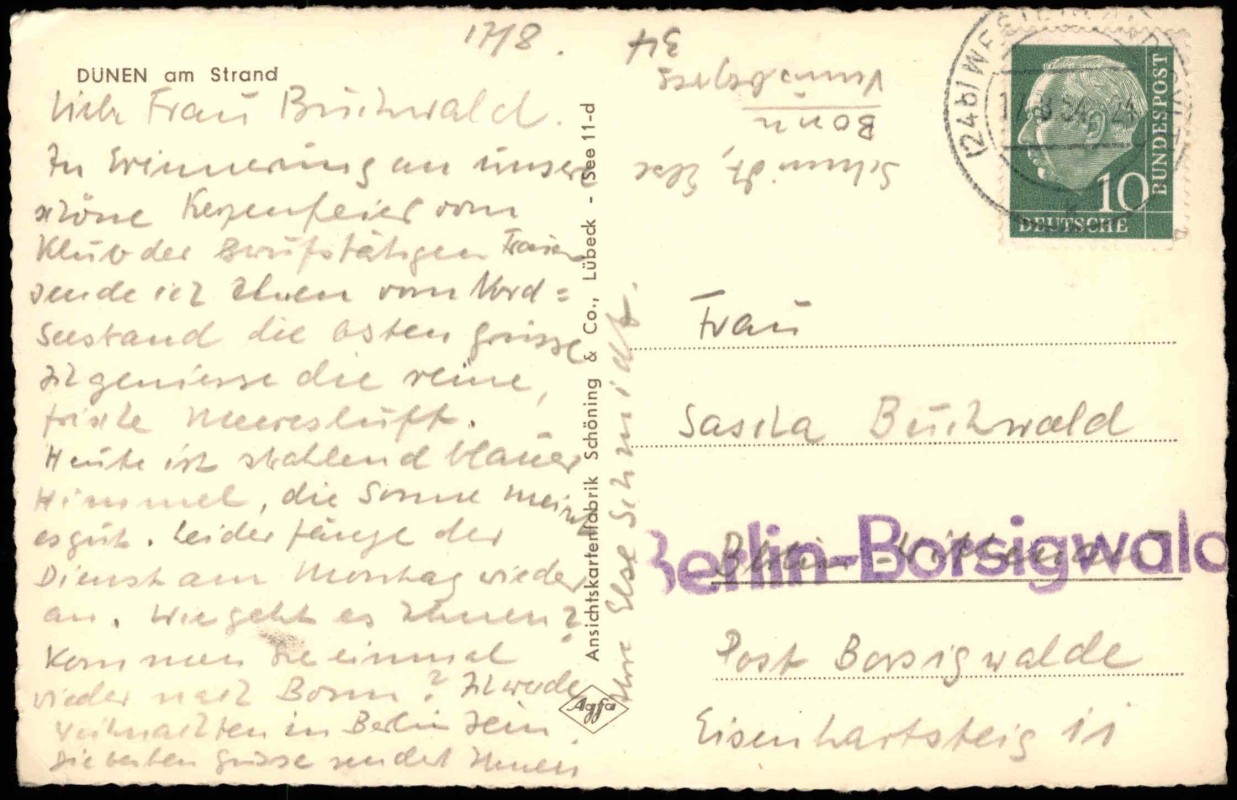 17/8.
DÜNEN am Strand
Liebe Frau Buchwald.
In Erinnerung an unsere
schöne Kerzenfeier vom
Klub der Berufstätigen Frauen
sende ich Ihnen vom Nord=
seestrand die besten Grüsse
Ich geniesse die reine,
frische Meeresluft.
Heute ist strahlend blauer
Himmel, die Sonne meint
es gut. Leider fängt der
Dienst am Montag wieder
an. Wie geht es Ihnen?
Kommen Sie einmal
wieder nach Bonn? Ich werde
Weihnachten in Berlin sein.
Die besten Grüsse sendet Ihnen
Ihre Else Schmidt.
Ansichtskartenfabrik Schöning & Co., Lübeck - (See 11-d
Agfa
Schmidt, Else
Bonn
34
(24b) WESTERLAND
17.8.54 -24
10
DEUTSCHE
BUNDESPOST
Frau
Sascha Buchwald
Berlin-Wittenau
Berlin-Borsigwald
Post Borsigwalde
Eisenhartsteig 11